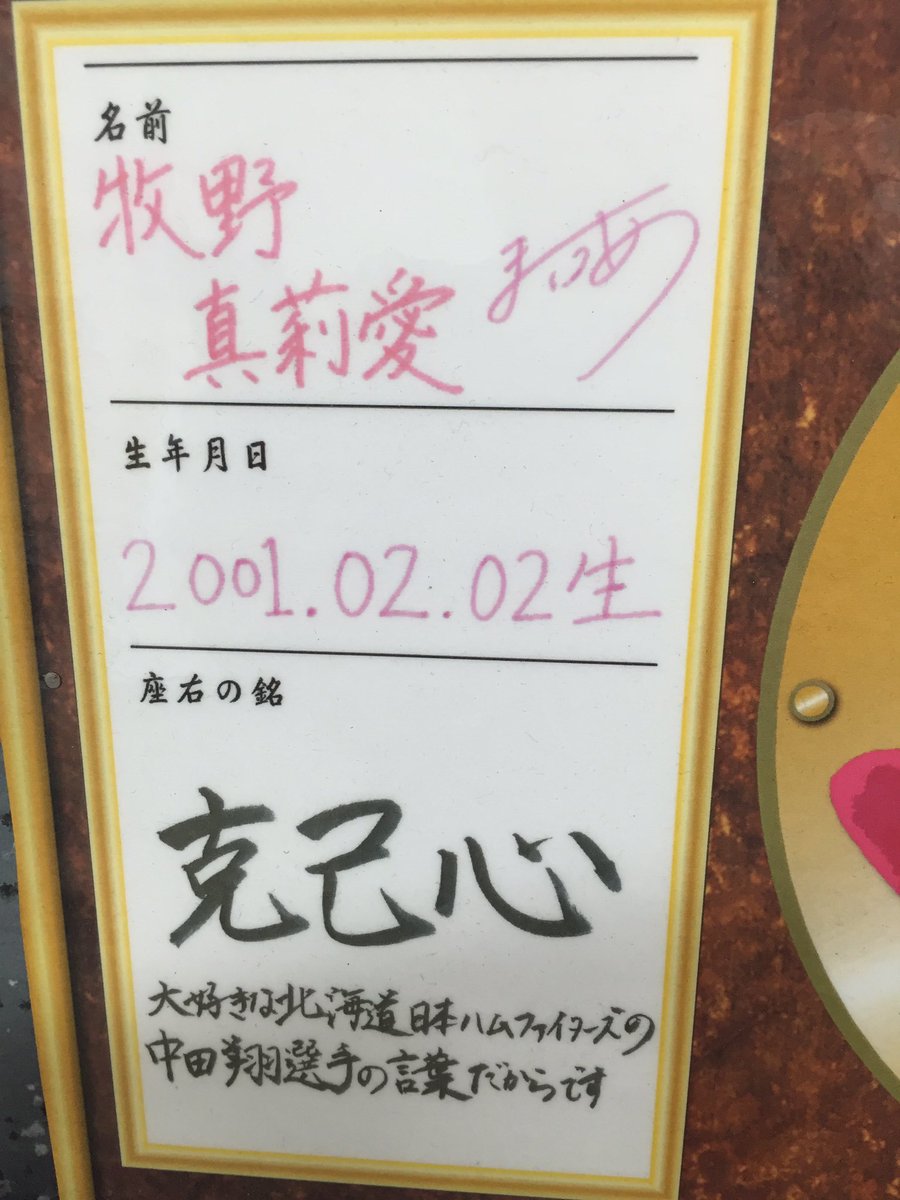 名前
牧野
真莉愛
まりあ
生年月日
2001.02.02生
座右の銘
克己心
大好きな北海道日本ハムファイターズの
中田翔選手の言葉だからです